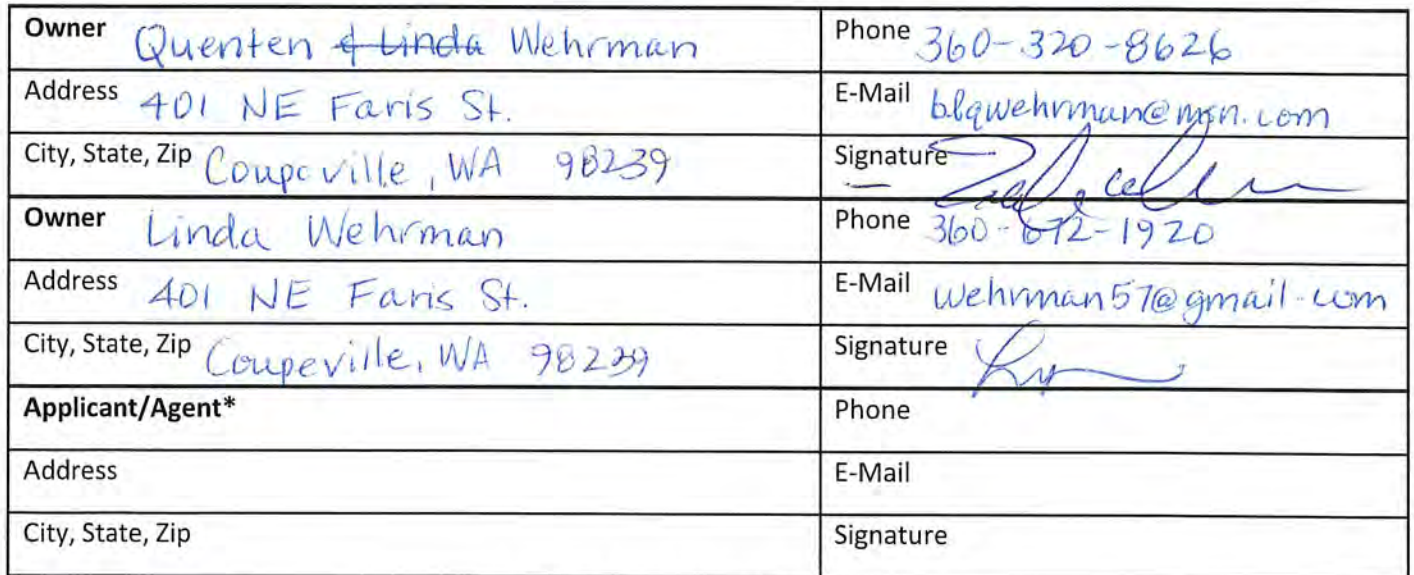 Owner Quenten & Linda Wehrman Phone 360-320-8626
Address 401 NE Faris St. E-Mail blqwehrman@msn.com
City, State, Zip Coupeville, WA 98239 Signature
Owner Linda Wehrman Phone 360-672-1920
Address 401 NE Faris St. E-Mail wehrman57@gmail.com
City, State, Zip Coupeville, WA 98239 Signature
Applicant/Agent* Phone
Address E-Mail
City, State, Zip Signature